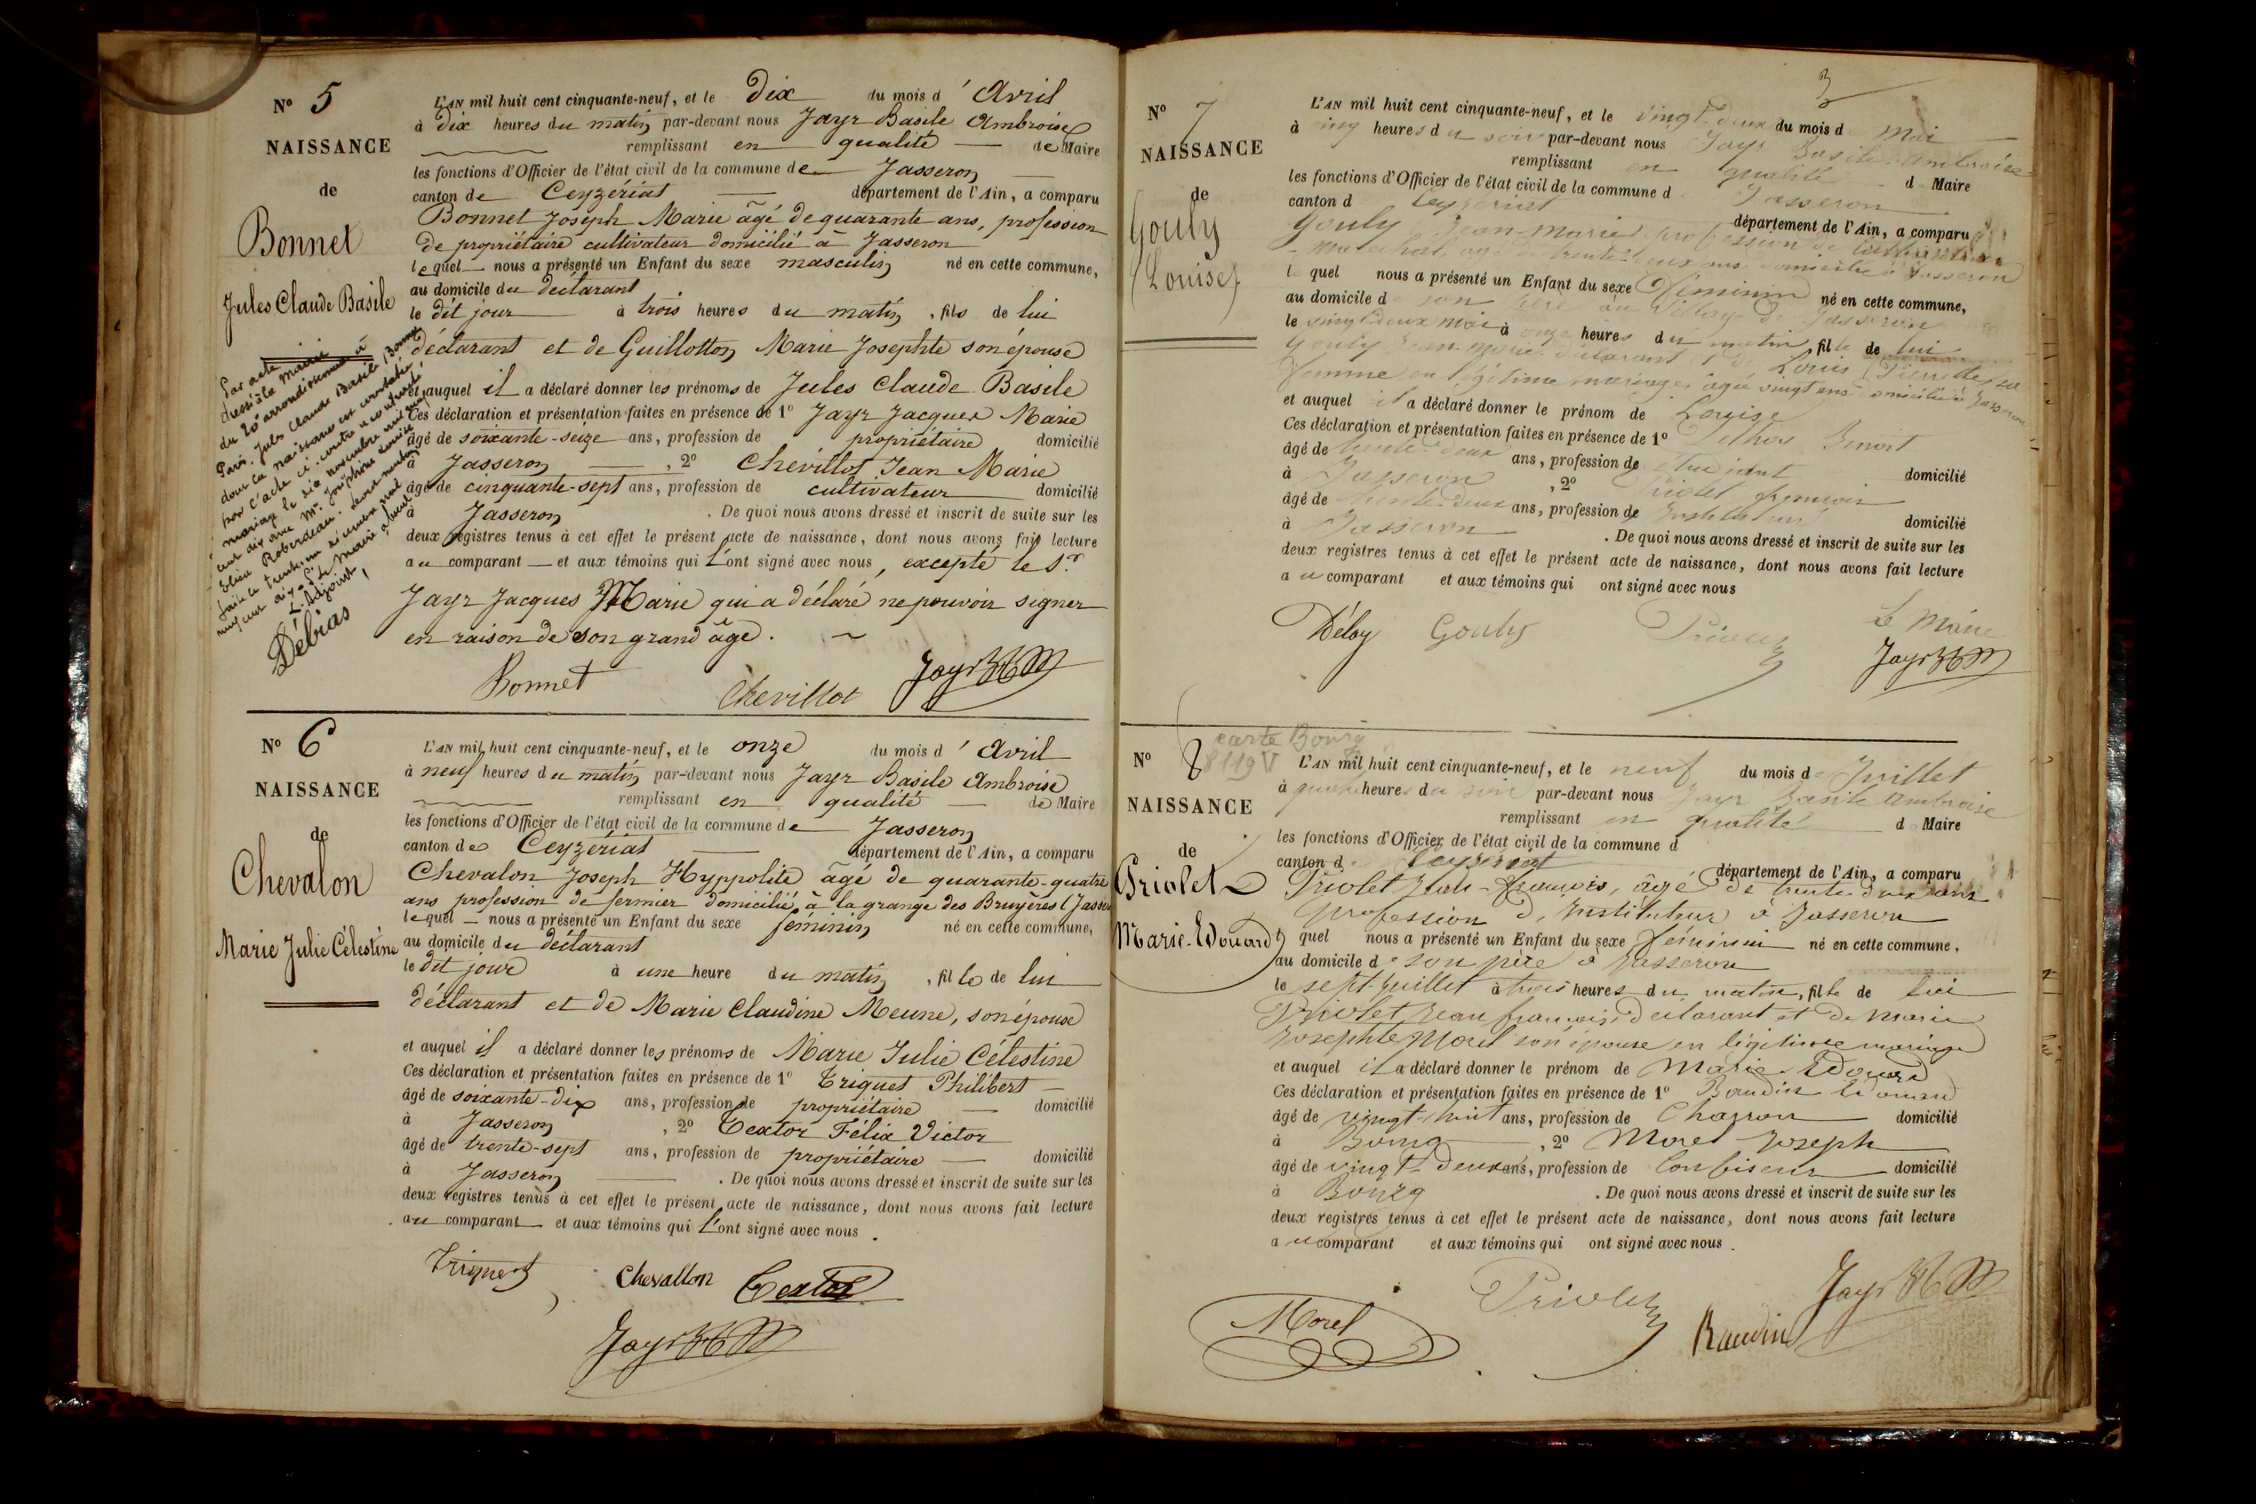 N° 5
NAISSANCE
de
Bonnet
Jules Claude Basile
Par acte
dressé à la mairie
du 20e arrondissement à
Paris, Jules Claude Basile Bonnet
dont la naissance est constatée
par l'acte ci-contre a contracté
mariage le six novembre mil neuf
cent dix avec Mme Joséphine Louise
Elisa Roberdeau. Dont mention
faite le trente-un décembre mil
neuf cent dix
L'Adjoint,
Débias
L'AN mil huit cent cinquante-neuf, et le dix du mois d'Avril
à dix heures du matin par-devant nous Jayr Basile Ambroise
remplissant en qualité de Maire
les fonctions d'Officier de l'état civil de la commune de Jasseron
canton de Ceyzériat département de l'Ain, a comparu
Bonnet Joseph Marie âgé de quarante ans, profession
de propriétaire cultivateur domicilié à Jasseron
lequel nous a présenté un Enfant du sexe masculin né en cette commune,
au domicile du déclarant
le dit jour à trois heures du matin, fils de lui
déclarant et de Guillotton Marie Josephte son épouse
et auquel il a déclaré donner les prénoms de Jules Claude Basile
Ces déclaration et présentation faites en présence de 1° Jayr Jacques Marie
âgé de soixante-seize ans, profession de propriétaire domicilié
à Jasseron, 2° Chevillot Jean Marie
âgé de cinquante-sept ans, profession de cultivateur domicilié
à Jasseron. De quoi nous avons dressé et inscrit de suite sur les
deux registres tenus à cet effet le présent acte de naissance, dont nous avons fait lecture
au comparant et aux témoins qui l'ont signé avec nous, excepté le Sr
Jayr Jacques Marie qui a déclaré ne pouvoir signer
en raison de son grand âge.
Bonnet Chevillot Jayr
N° 6
NAISSANCE
de
Chevalon
Marie Julie Célestine
L'AN mil huit cent cinquante-neuf, et le onze du mois d'Avril
à neuf heures du matin par-devant nous Jayr Basile Ambroise
remplissant en qualité de Maire
les fonctions d'Officier de l'état civil de la commune de Jasseron
canton de Ceyzériat département de l'Ain, a comparu
Chevalon Joseph Hyppolite âgé de quarante-quatre
ans profession de fermier domicilié à la grange des Bruyères (Jasseron
lequel nous a présenté un Enfant du sexe féminin né en cette commune,
au domicile du déclarant
le dit jour à une heure du matin, fille de lui
déclarant et de Marie Claudine Meune, son épouse
et auquel il a déclaré donner les prénoms de Marie Julie Célestine
Ces déclaration et présentation faites en présence de 1° Triquet Philibert
âgé de soixante-dix ans, profession de propriétaire domicilié
à Jasseron, 2° Textor Félix Victor
âgé de trente-sept ans, profession de propriétaire domicilié
à Jasseron. De quoi nous avons dressé et inscrit de suite sur les
deux registres tenus à cet effet le présent acte de naissance, dont nous avons fait lecture
au comparant et aux témoins qui l'ont signé avec nous.
Triquet Chevallon Textor
Jayr
3
N° 7
NAISSANCE
de
Gouly
(Louise)
L'AN mil huit cent cinquante-neuf, et le vingt-deux du mois de Mai
à cinq heures du soir par-devant nous Jayr Basile Ambroise
remplissant en qualité d Maire
les fonctions d'Officier de l'état civil de la commune d Jasseron
canton d Ceyzériat département de l'Ain, a comparu
Gouly Jean-Marie, profession de
âgé de trente-deux ans domicilié à Jasseron
le quel nous a présenté un Enfant du sexe féminin né en cette commune,
au domicile de son père au village de Jasseron
le vingt deux mai à onze heures du matin, fille de lui
Gouly Jean Marie déclarant et de Louis Pierrette sa
femme en légitime mariage âgée vingt ans domiciliée à Jasseron
et auquel il a déclaré donner le prénom de Louise
Ces déclaration et présentation faites en présence de 1° Benoit
âgé de trente-deux ans, profession de étudiant domicilié
à Jasseron, 2° Priolet françois
âgé de trente-deux ans, profession de Instituteur domicilié
à Jasseron. De quoi nous avons dressé et inscrit de suite sur les
deux registres tenus à cet effet le présent acte de naissance, dont nous avons fait lecture
au comparant et aux témoins qui ont signé avec nous
Gouly Priolet Le Maire
Jayr
carte Bourg
8119 V
N° 8
NAISSANCE
de
Priolet
Marie-Edouard
L'AN mil huit cent cinquante-neuf, et le neuf du mois de Juillet
à quatre heures du soir par-devant nous Jayr Basile Ambroise
remplissant en qualité d Maire
les fonctions d'Officier de l'état civil de la commune d
canton d Ceyzériat département de l'Ain, a comparu
Priolet Jean-François, âgé de trente deux ans
profession d'Instituteur à Jasseron
le quel nous a présenté un Enfant du sexe féminin né en cette commune,
au domicile de son père à Jasseron
le sept Juillet à trois heures du matin, fille de lui
Priolet Jean françois déclarant et de Marie
Josephte Morel son épouse en légitime mariage
et auquel il a déclaré donner le prénom de Marie-Edouard
Ces déclaration et présentation faites en présence de 1° Baudin Edouard
âgé de vingt-huit ans, profession de Charron domicilié
à Bourg, 2° Morel Joseph
âgé de vingt-deux ans, profession de Confiseur domicilié
à Bourg. De quoi nous avons dressé et inscrit de suite sur les
deux registres tenus à cet effet le présent acte de naissance, dont nous avons fait lecture
au comparant et aux témoins qui ont signé avec nous.
Morel Priolet Baudin Jayr